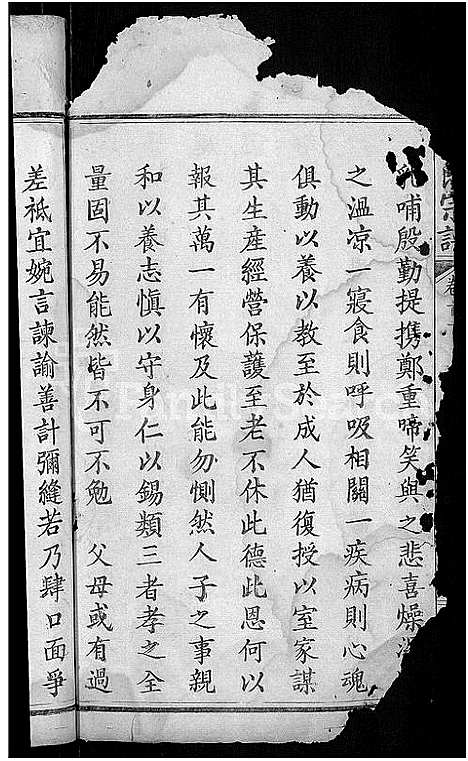 宗譜
乳哺殷勤提携鄭重啼笑與之悲喜燥濕
之溫凉一寢食則呼吸相關一疾病則心魂
俱動以養以教至於成人猶復授以室家謀
其生産經營保護至老不休此德此恩何以
報其萬一有懷及此能勿惻然人子之事親
和以養志慎以守身仁以錫類三者孝之全
量固不易能然皆不可不勉　父母或有過
差祗宜婉言諫諭善計彌縫若乃肆口面爭